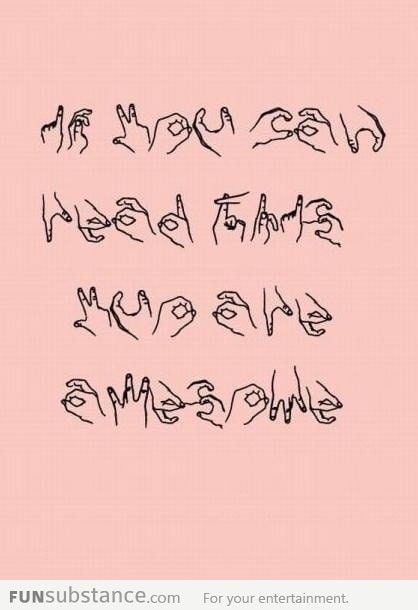 if you can
read this
yuo are
awesome
FUNsubstance.com For your entertainment.